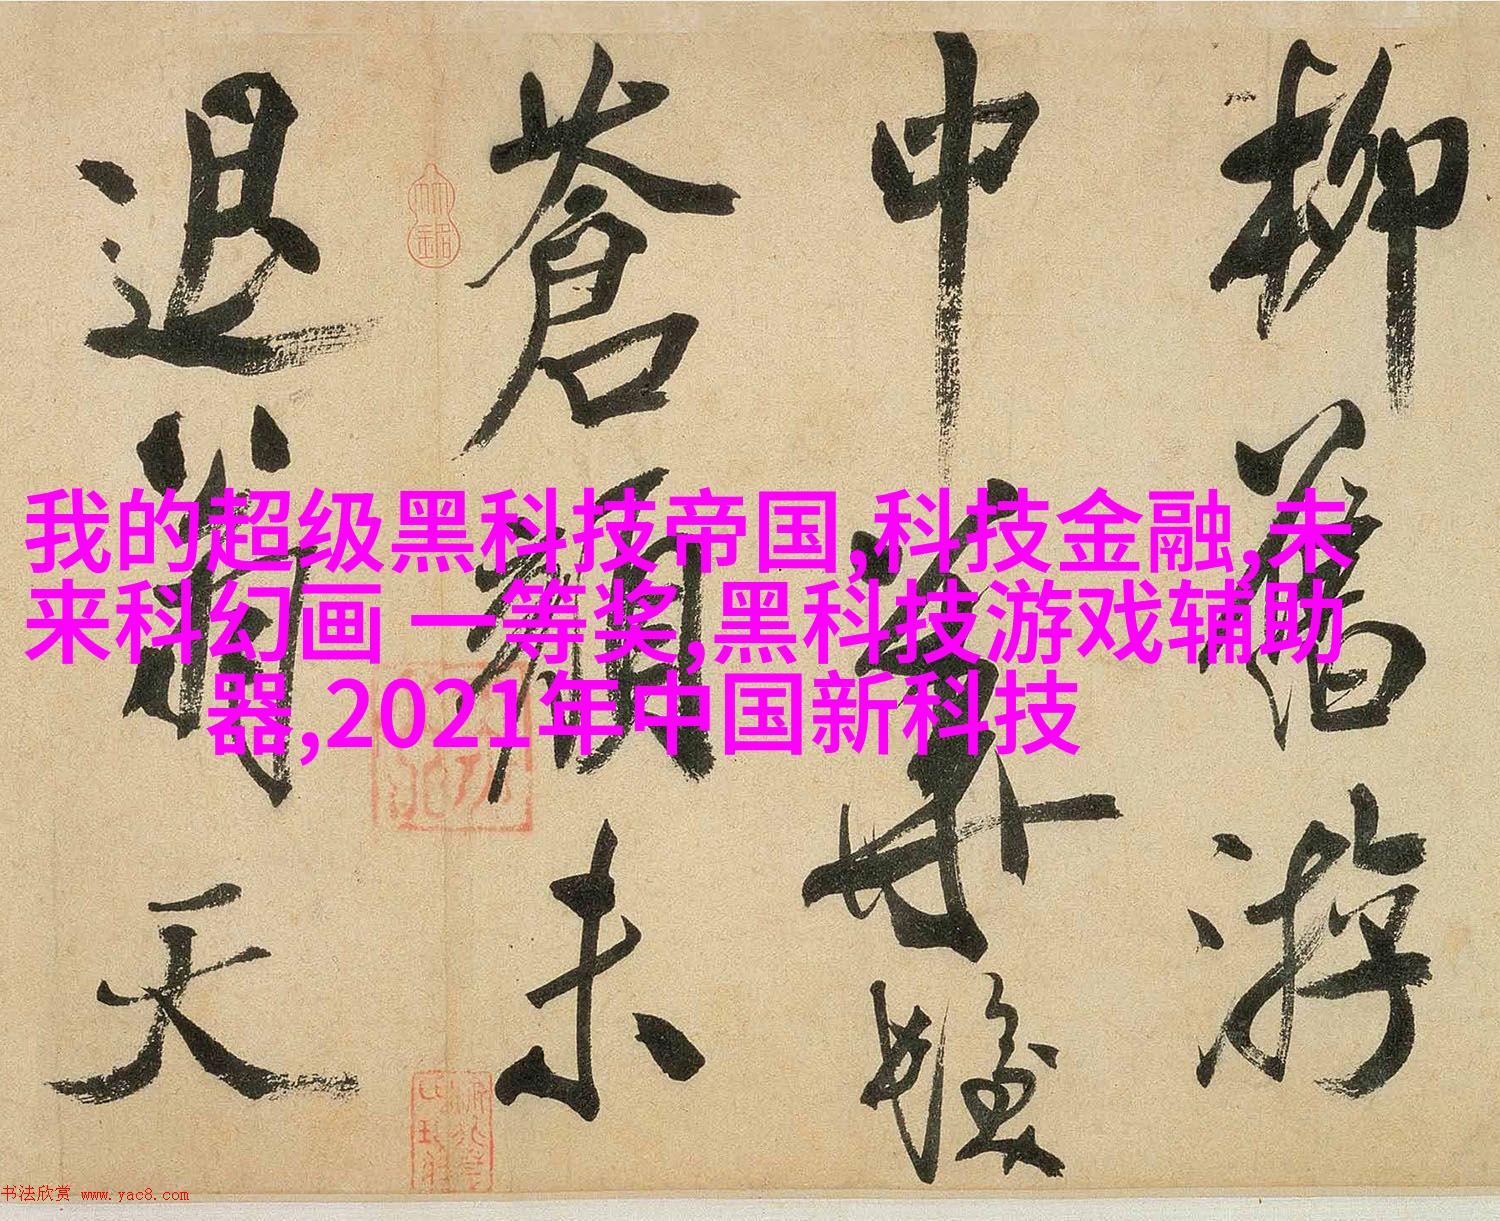 柳舊游
中華髮
蒼顏未
退翁天
我的超级黑科技帝国,科技金融,未
来科幻画 一等奖,黑科技游戏辅助
器,2021年中国新科技
书法欣赏 www.yac8.com